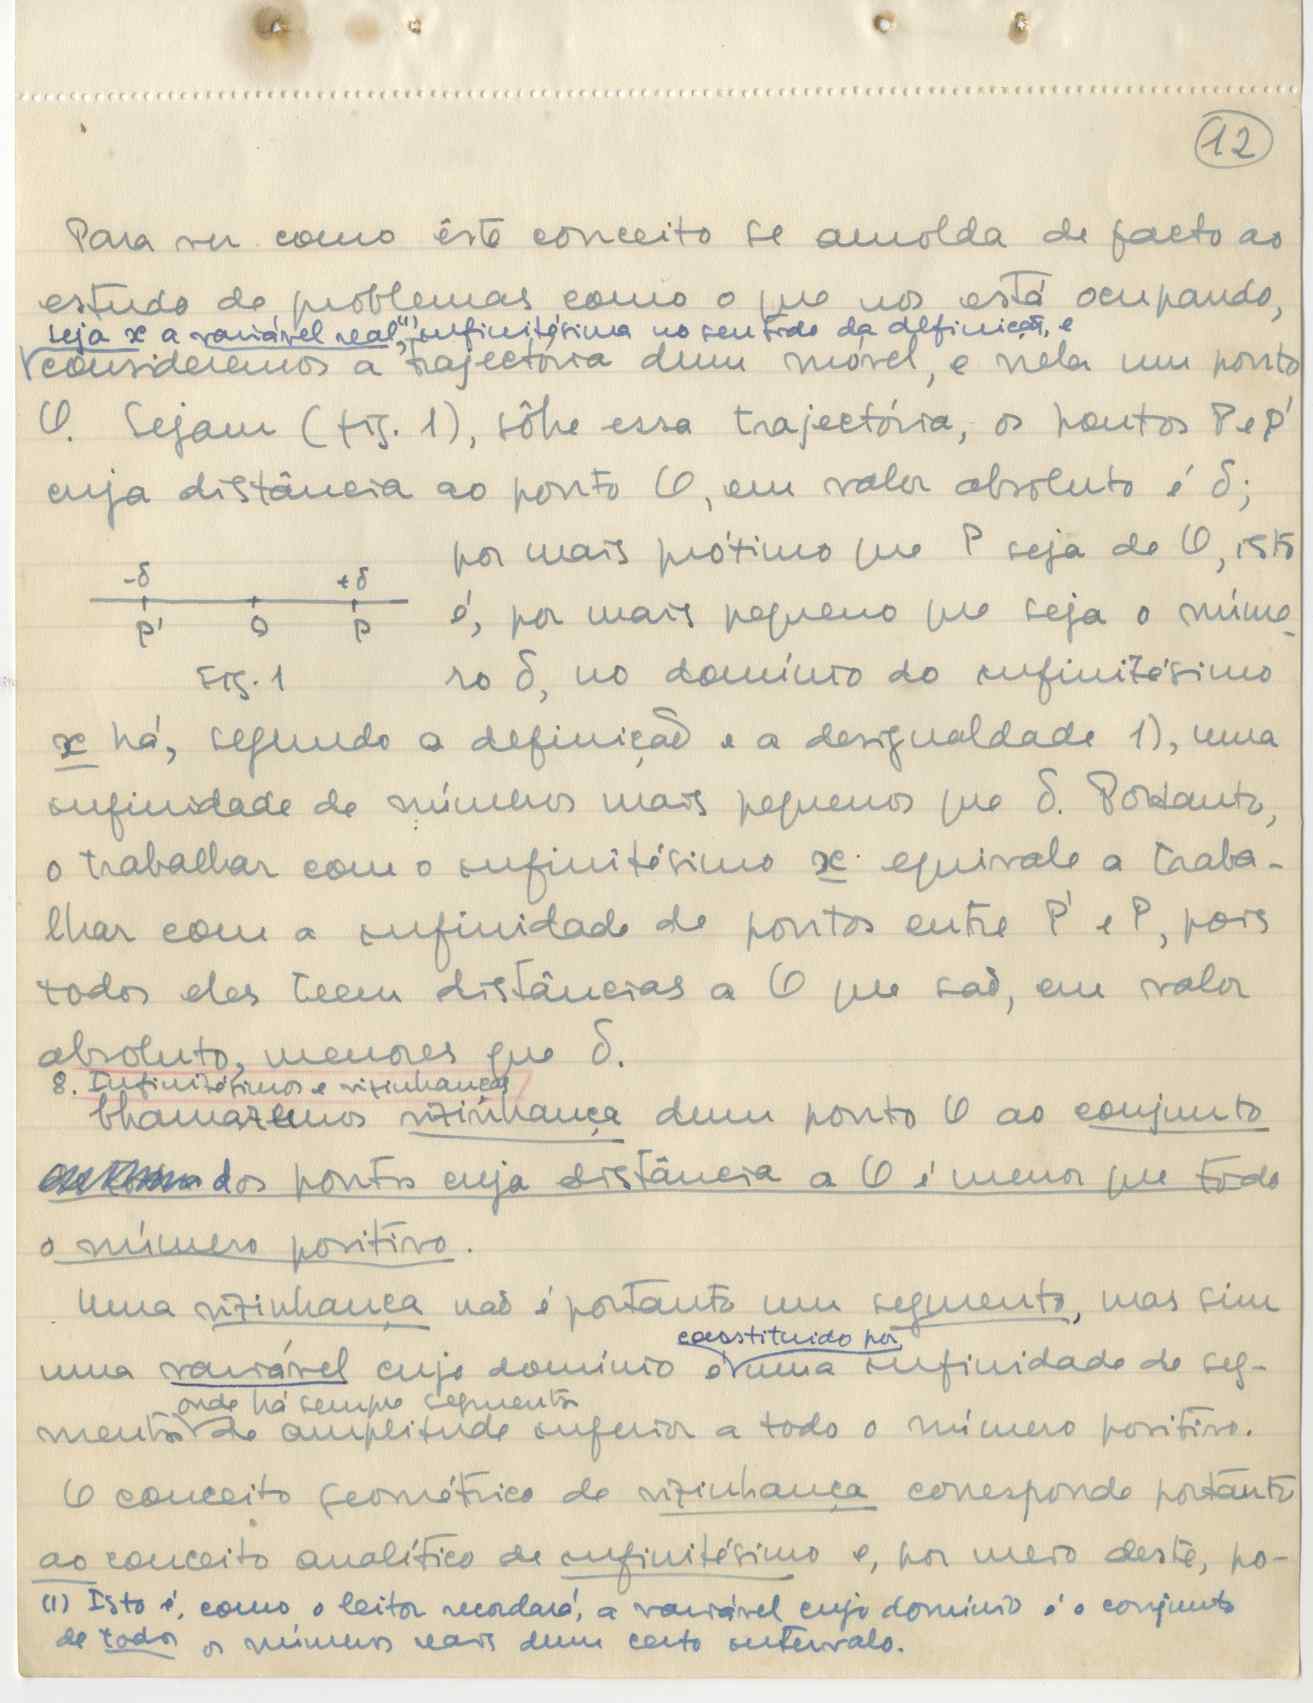 12
Para ver como êste conceito se amolda de facto ao
estudo de problemas como o que nos está ocupando,
seja x a variável real(1), infinitésima no sentido da definição, e
consideremos a trajectória dum móvel, e nela um ponto
O. Sejam (fig. 1), sôbre essa trajectória, os pontos P e P'
cuja distância ao ponto O, em valor absoluto é δ;
por mais próximo que P seja de O, isto
-δ +δ
é, por mais pequeno que seja o núme-
P' O P
fig. 1
ro δ, no domínio do infinitésimo
x há, segundo a definição e a desigualdade 1), uma
infinidade de números mais pequenos que δ. Portanto,
o trabalhar com o infinitésimo x equivale a traba-
lhar com a infinidade de pontos entre P' e P, pois
todos eles teem distâncias a O que são, em valor
absoluto, menores que δ.
8. Infinitésimos e vizinhanças
Chamaremos vizinhança dum ponto O ao conjunto
dos pontos cuja distância a O é menor que todo
o número positivo.
Uma vizinhança não é portanto um segmento, mas sim
constituido por
uma variável cujo domínio é uma infinidade de seg-
onde há sempre segmentos
mentos de amplitude inferior a todo o número positivo.
O conceito geométrico de vizinhança corresponde portanto
ao conceito analítico de infinitésimo e, por meio deste, po-
(1) Isto é, como o leitor recordará, a variável cujo domínio é o conjunto
de todos os números reais dum certo intervalo.